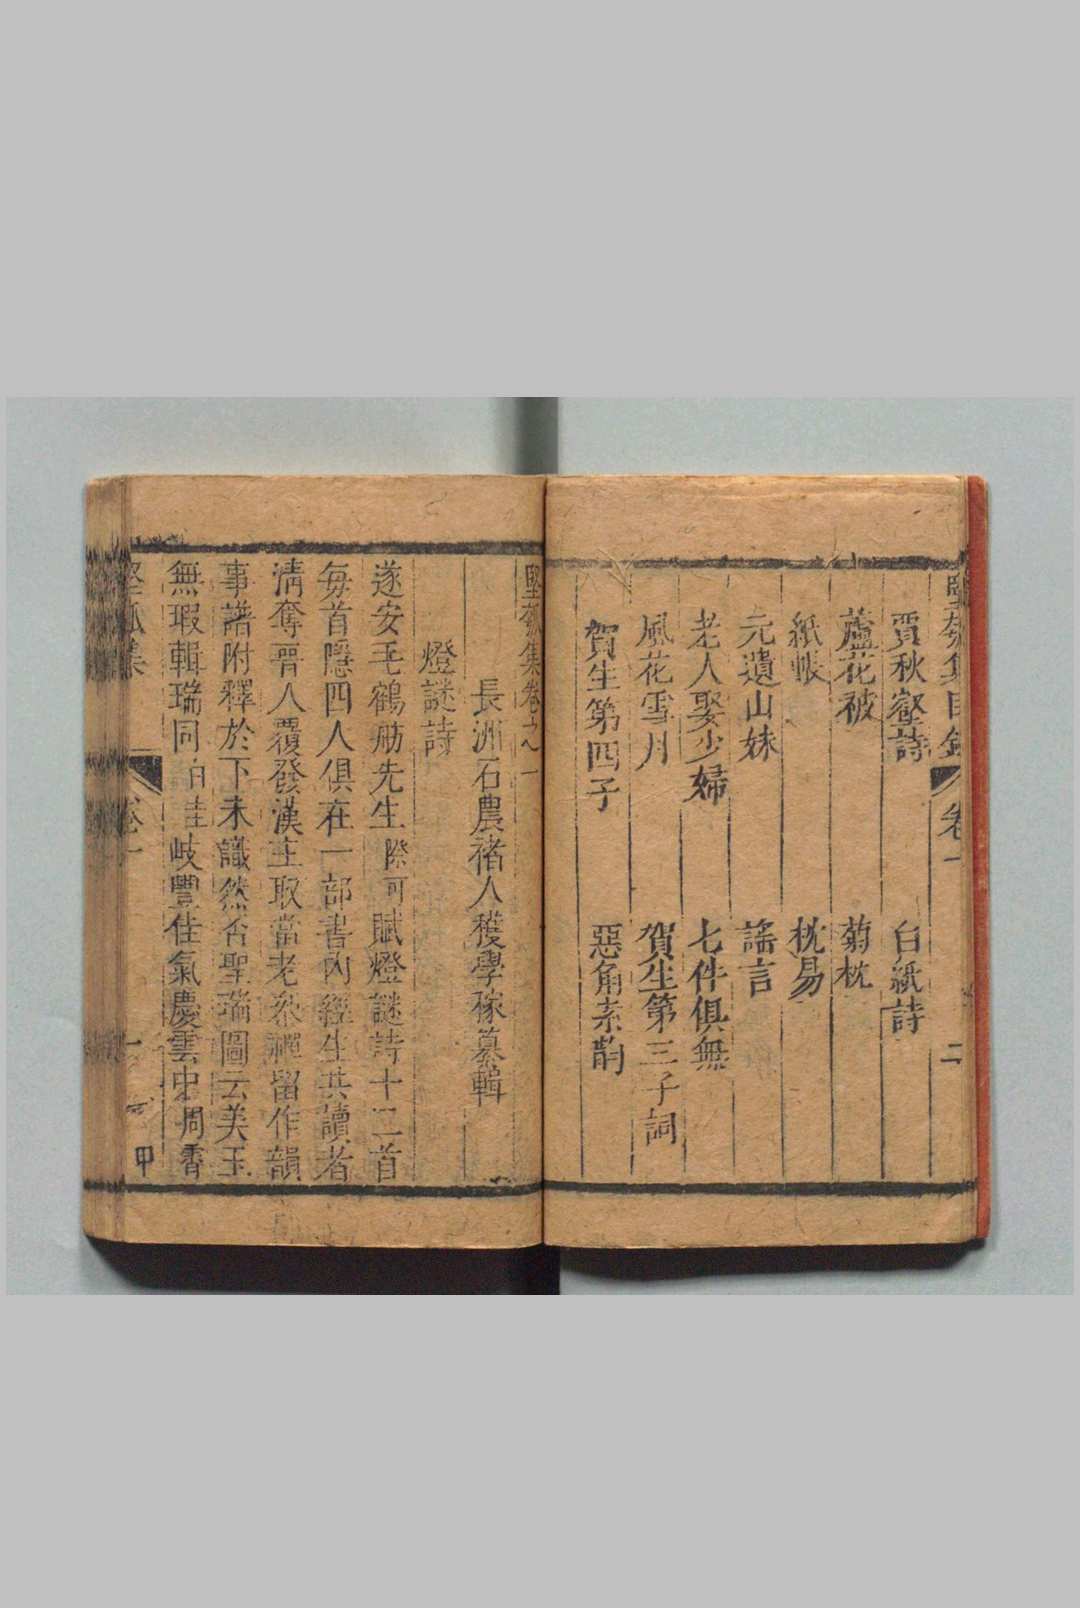 堅瓠集目錄 卷一 二
賈秋壑詩 白紙詩
蘆花被 菊枕
紙帳 枕易
元遺山妹 謠言
老人娶少婦 七件俱無
風花雪月 賀生第三子詞
賀生第四子 惡角素韵
堅瓠集卷之一
長洲石農褚人穫學稼纂輯
燈謎詩
遂安毛鶴舫先生際可賦燈謎詩十二首
每首隱四人俱在一部書內經生共讀者
淸奪晉人覆發漢庄取當老杀禪留作韻
事譜附釋於下未識然否聖瑞圖云美玉
無瑕輯瑞同 岐豐佳氣慶雲中周霄
堅瓠集 卷一 一 甲